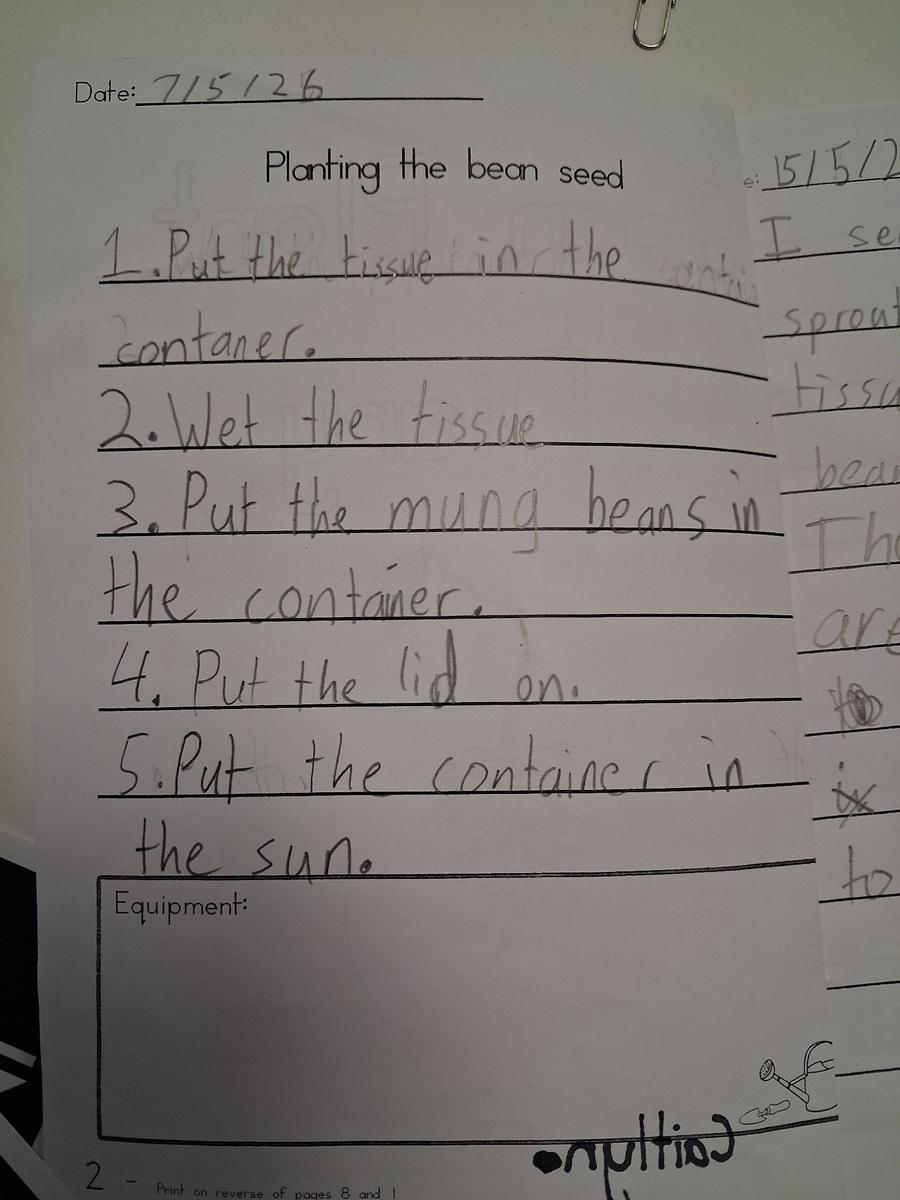 Date: 7/5/26
Planting the bean seed
1. Put the tissue in the
contaner.
2. Wet the tissue
3. Put the mung beans in
the container.
4. Put the lid on.
5. Put the container in
the sun.
Equipment:
Caitlyn
2 - Print on reverse of pages 8 and 1
15/5/2
I se
sprout
tissu
bea
Th
are
to